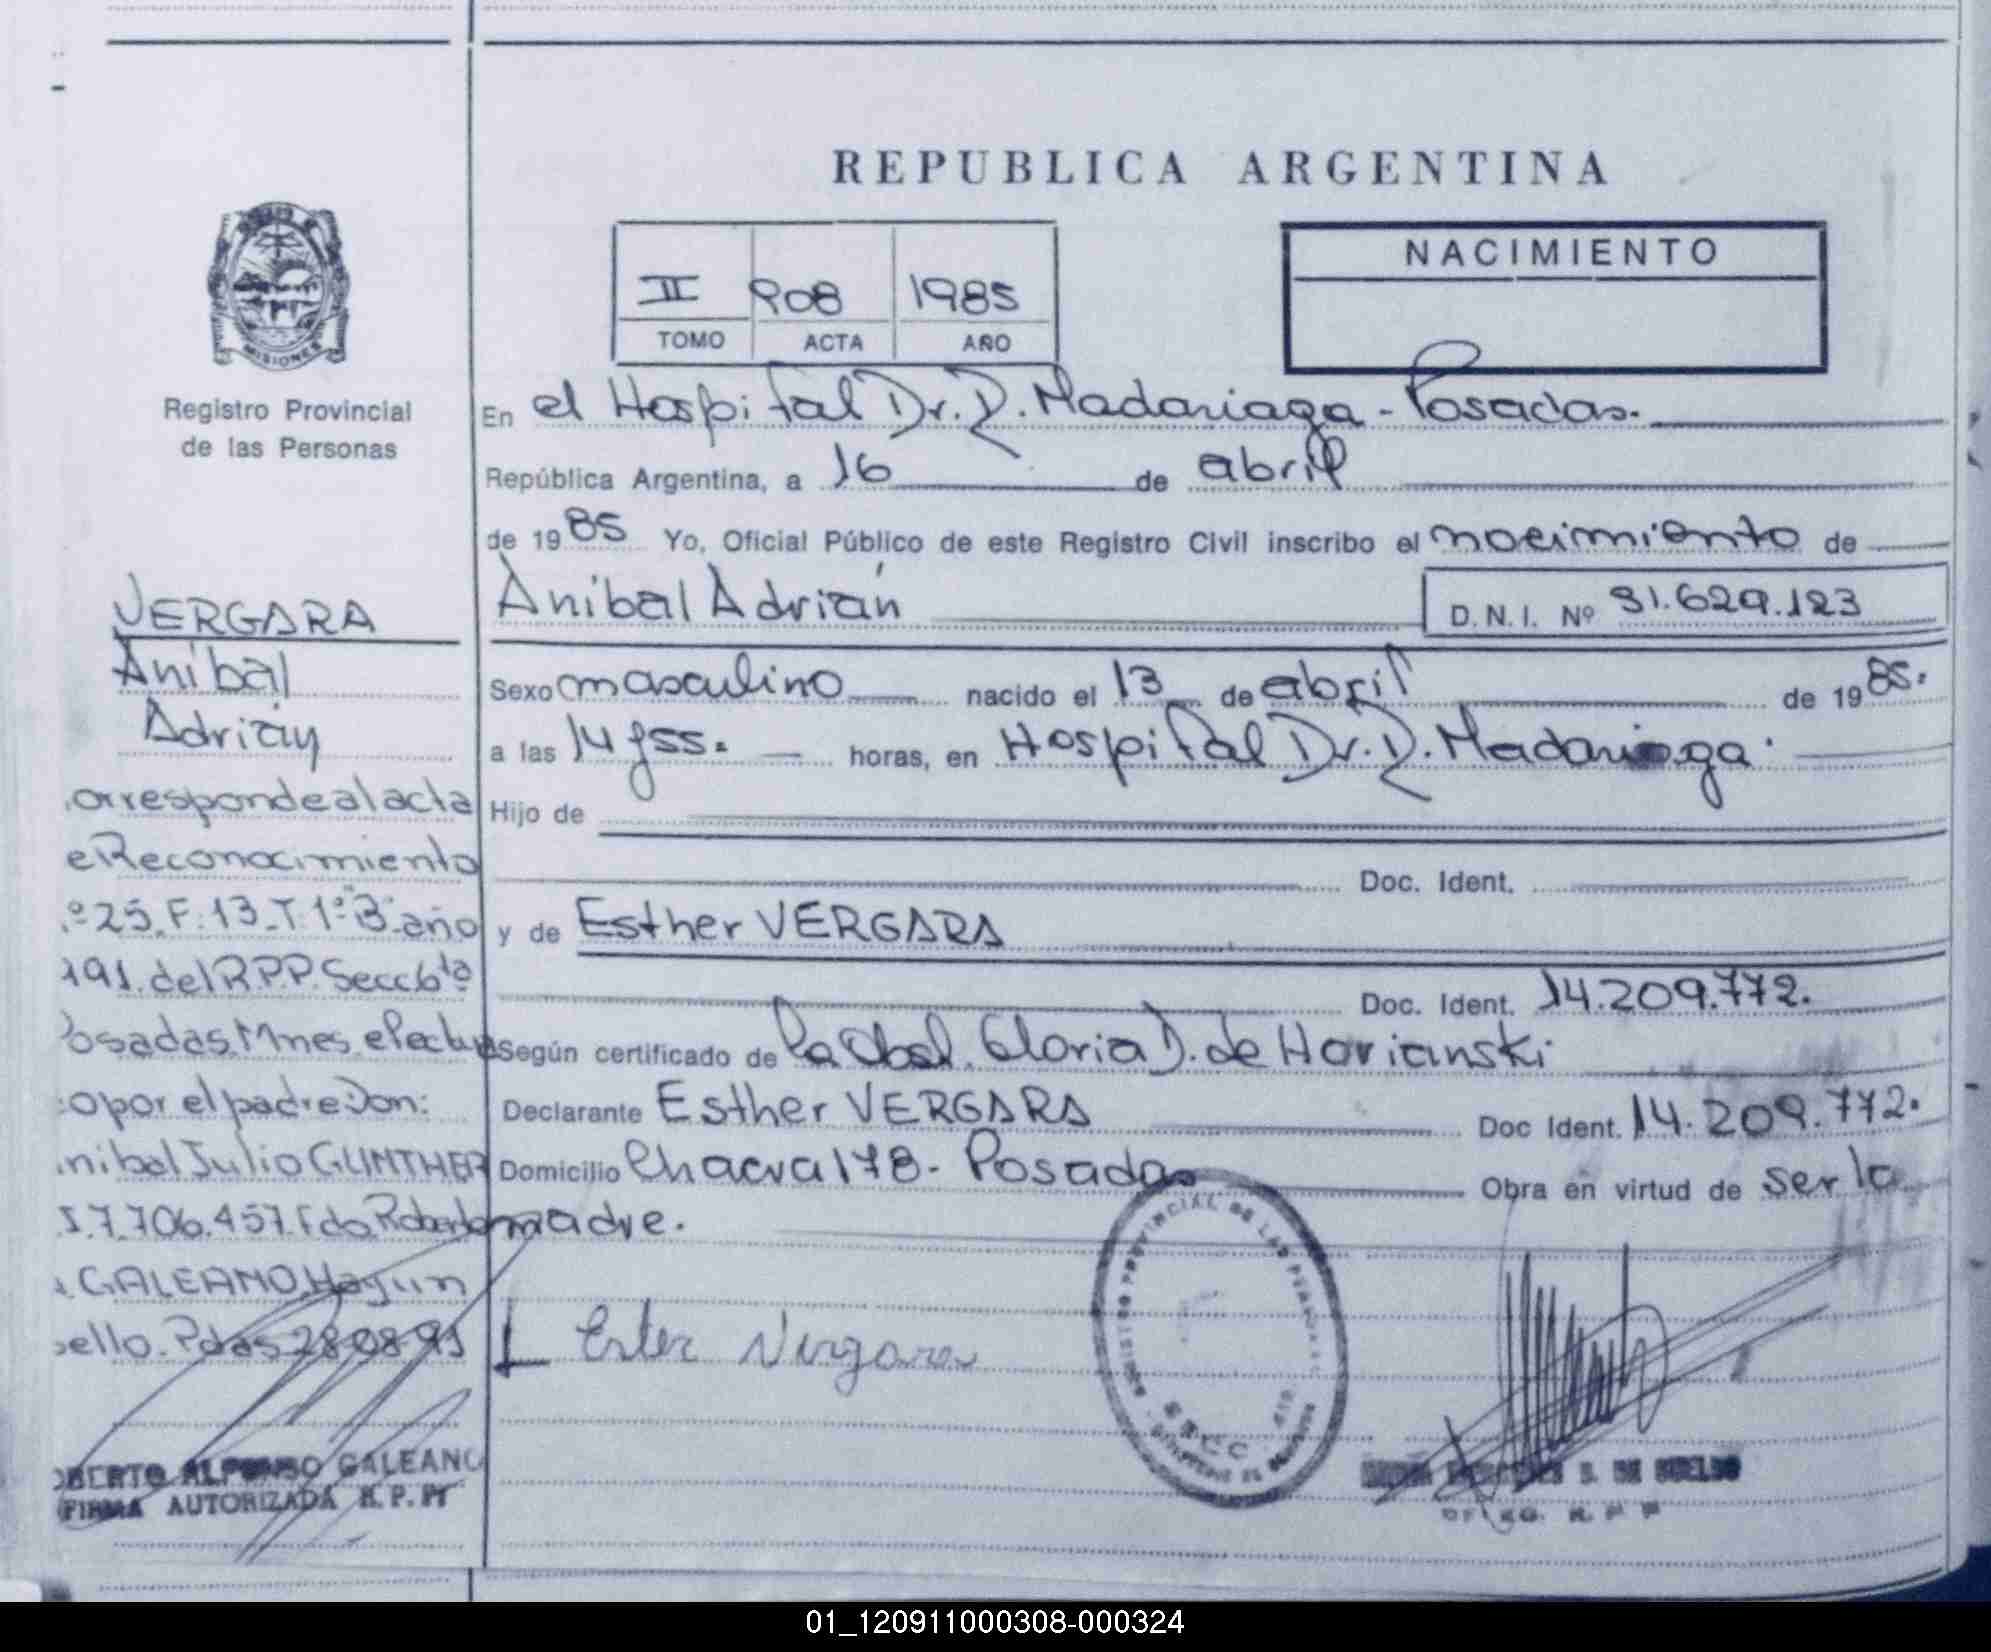 REPUBLICA ARGENTINA
II 908 1985
TOMO ACTA AÑO
NACIMIENTO
MISIONES
Registro Provincial
de las Personas
En el Hospital Dr. R. Madariaga - Posadas.
República Argentina, a 16 de abril
de 1985 Yo, Oficial Público de este Registro Civil inscribo el nacimiento de
Aníbal Adrián D.N.I. Nº 31.629.123
Sexo masculino nacido el 13 de abril de 1985.
a las 14 y 55. horas, en Hospital Dr. R. Madariaga.
Hijo de
Doc. Ident.
y de Esther VERGARA
Doc. Ident. 14.209.772.
Según certificado de la Obst. Gloria D. de Horianski
Declarante Esther VERGARA Doc Ident. 14.209.772.
Domicilio Chacra 178 - Posadas Obra en virtud de ser la
madre.
Ester Vergara
REGISTRO PROVINCIAL DE LAS PERSONAS
S. DE SUELDO
VERGARA
Aníbal
Adrián
orresponde al acta
e Reconocimiento
.º 25. F. 13. T. 1º "B" año
191. del R.P.P. Secc 6ta
Posadas Mnes. efectua
o por el padre Don:
nibal Julio GUNTHER
I. 7.706.457. Fdo. Roberto
. GALEANO. Hay un
sello. Pdas 28-08-91
OBERTO ALFONSO GALEANO
FIRMA AUTORIZADA R.P.P.
01_120911000308-000324